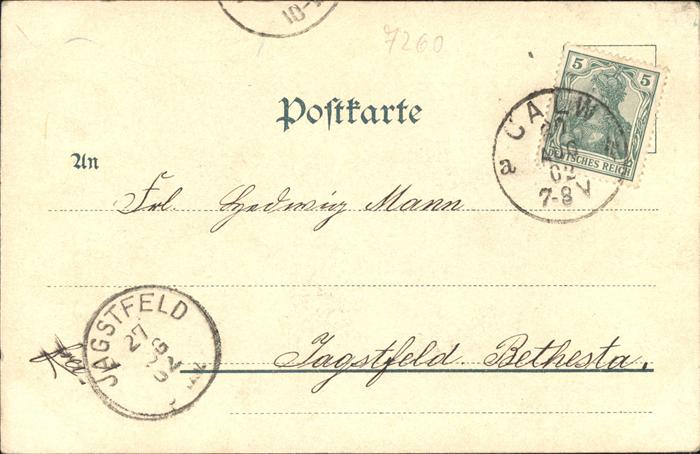 10-
7260
5 5
DEUTSCHES REICH
CALW
27
02
7-8 V
a
Postkarte
An
Frl. Hedwig Mann
JAGSTFELD
27
02
Jagstfeld Bethesta.